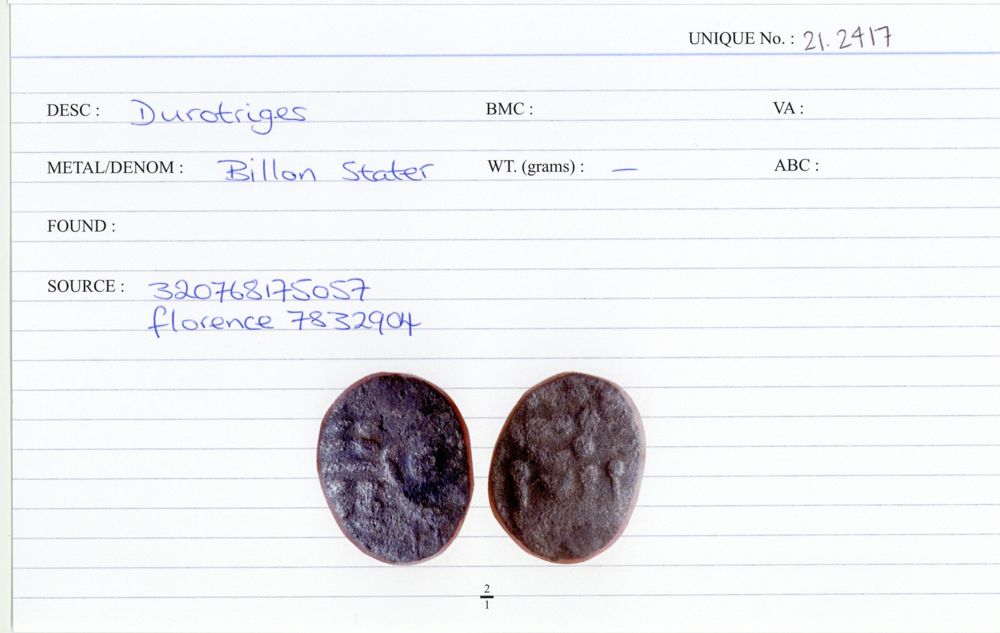 UNIQUE No. : 21.2417
DESC : Durotriges BMC : VA :
METAL/DENOM : Billon Stater WT. (grams) : — ABC :
FOUND :
SOURCE : 320768175057
florence 7832904
2
1